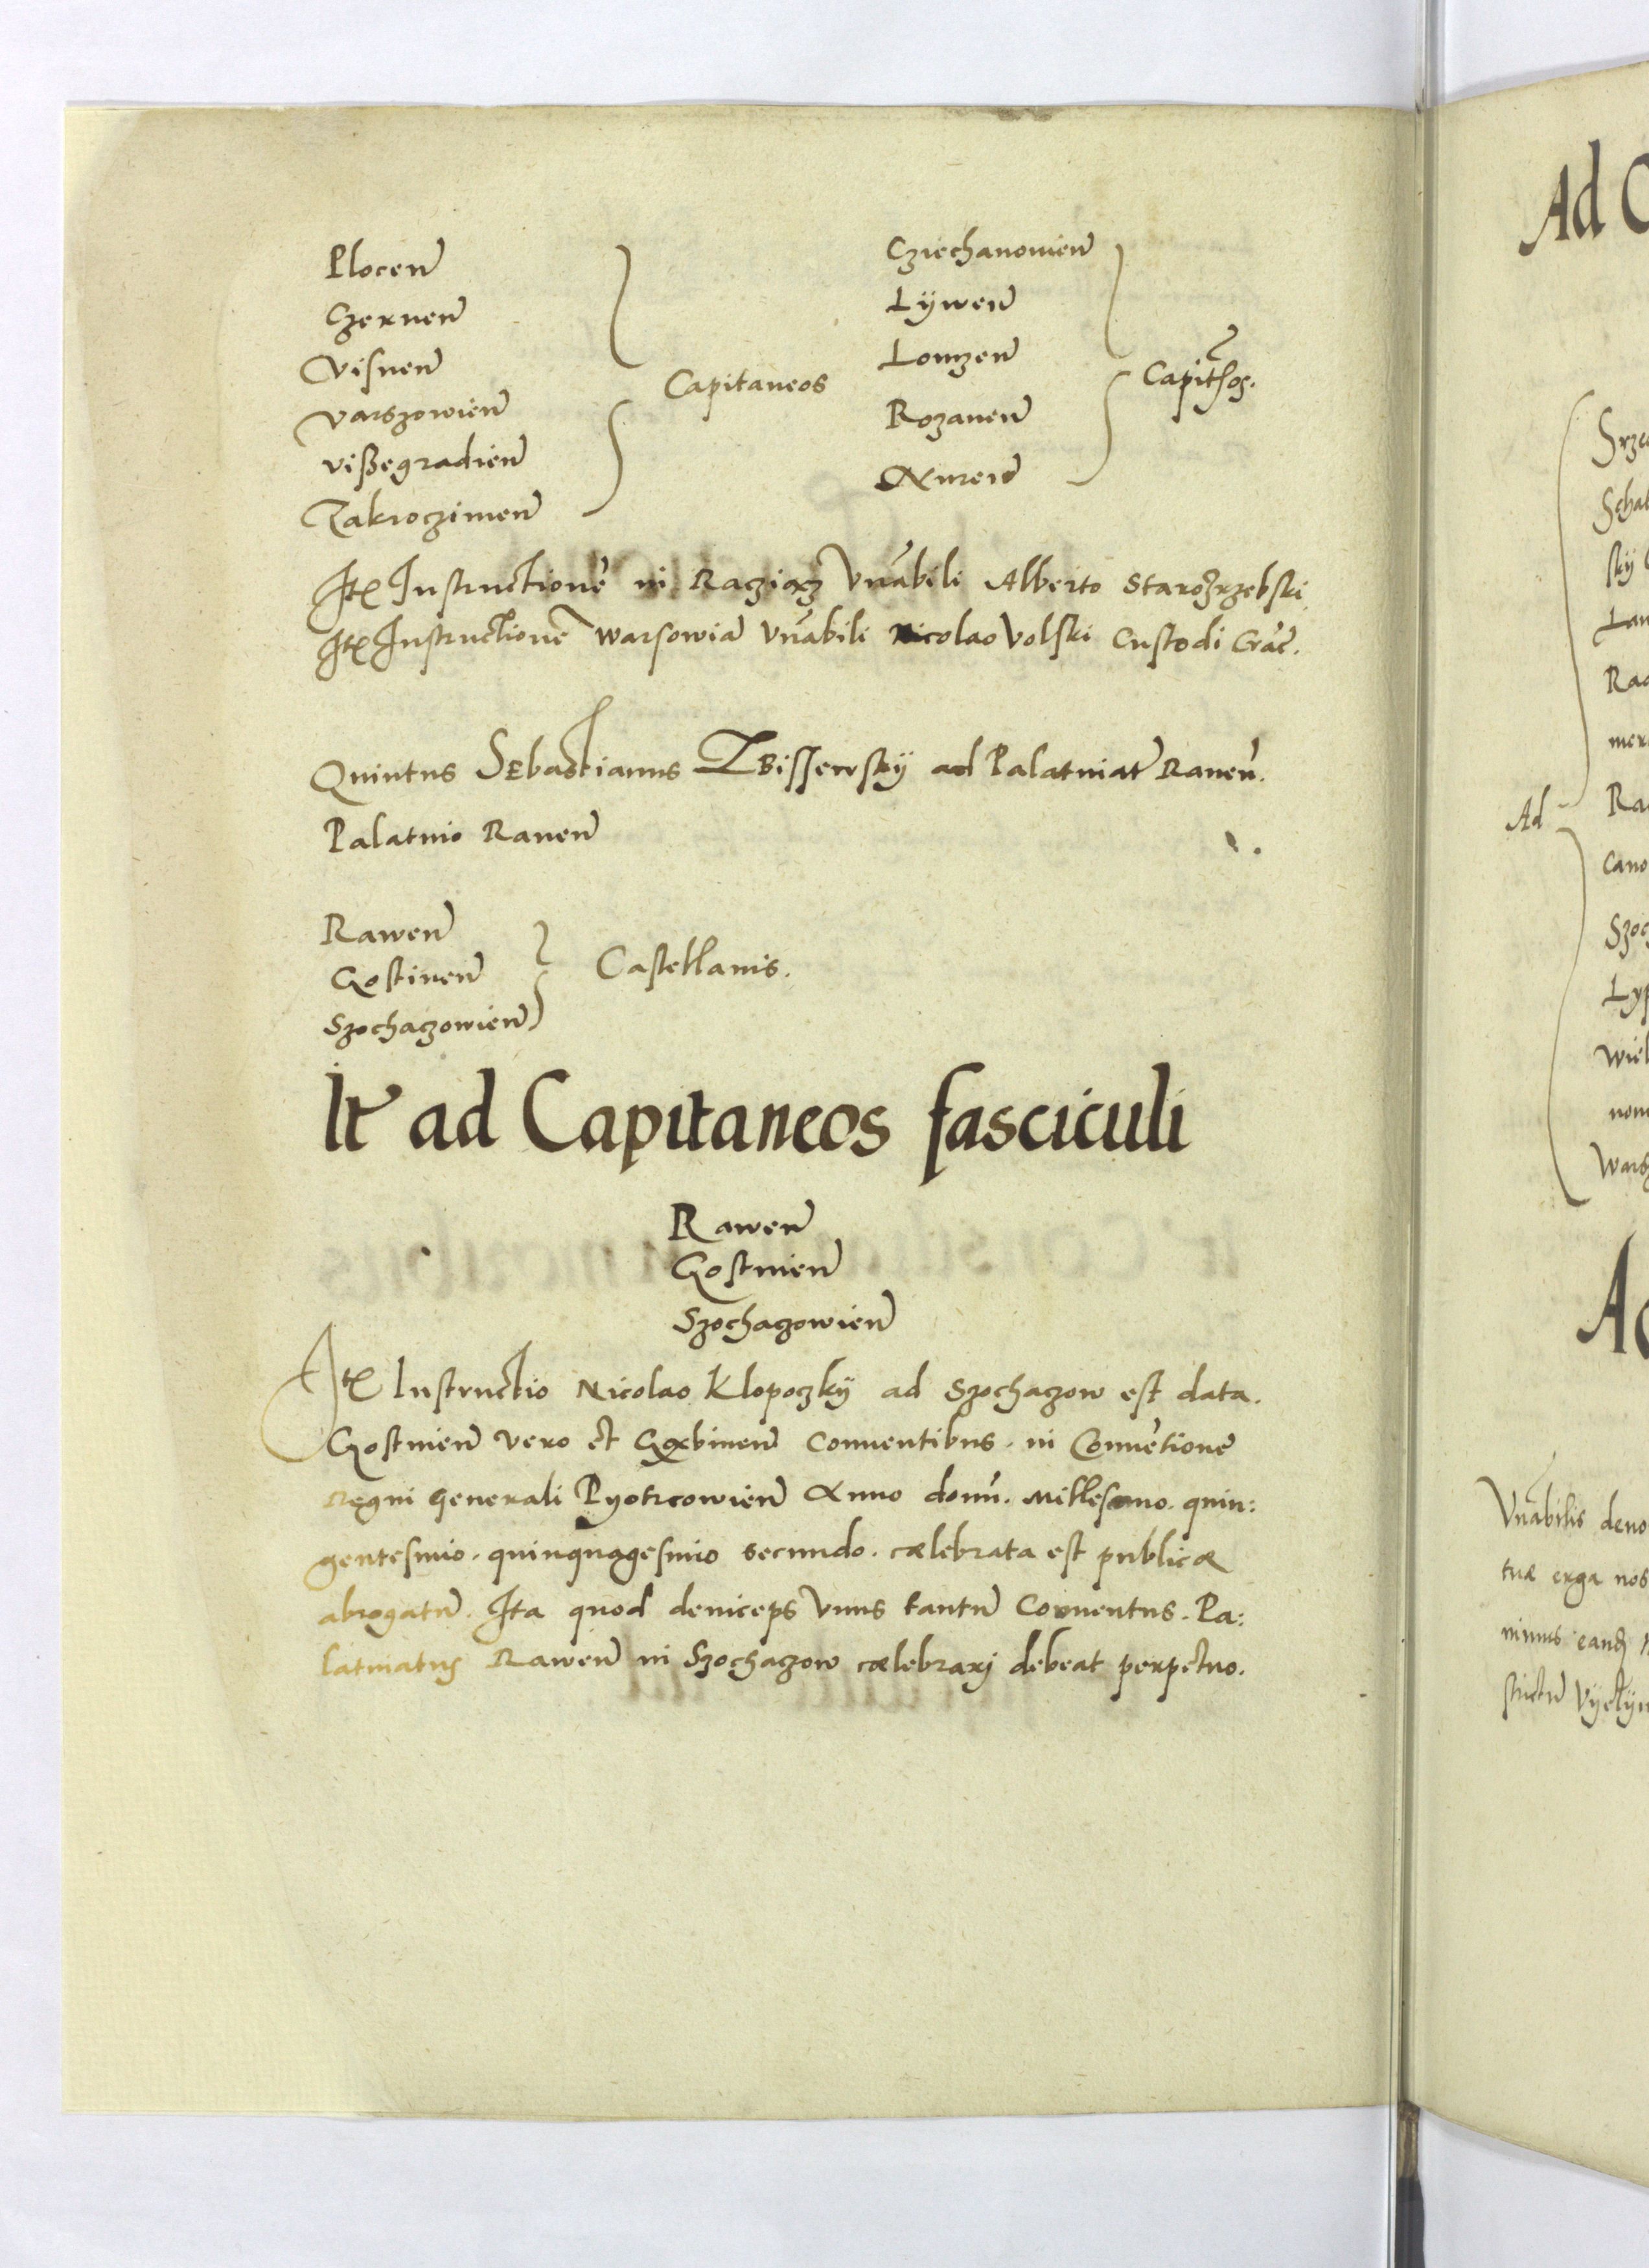 Plocen̄
Czernen̄
Visnen̄
Varszowien̄
Vißegradien̄
Zakroczimen̄
Capitaneos
Cziechanowien̄
Lijwen̄
Lomzen̄
Rozanen̄
Nuren̄
Itē Instructionē in Racziącz Vn̄abili Alberto Starozrzebski
Itē Instructionē Warsowiā Vn̄abili Nicolao Volski Custodi Crac̄.
Quintus Sebastianus ad Palatinat̄ Raven̄.
Palatino Raven̄
Rawen̄
Gostinen̄
Szochaczowien̄
Castellanis.
It̄ ad Capitaneos fasciculi
Rawen̄
Gostinen̄
Szochaczowien̄
Itē Instructio Nicolao Klopoczkÿ ad Szochaczow est data.
Gostinen̄ vero et Gąbinen̄ Conventibus. in Convētione
Regni Generali Pyotrcowien̄ Anno domn̄. Millesimo. quin:
gentesimo. quinquagesimo secundo. cælebrata est publicæ
abrogatū. Ita quod deinceps Vnus tantū Conventus. Pa:
latinatus Rawen̄ in Szochaczow cælebrarj debeat perpetuo.
Ad
Ad
Cano
Vn̄abilis devo
tuæ erga nos